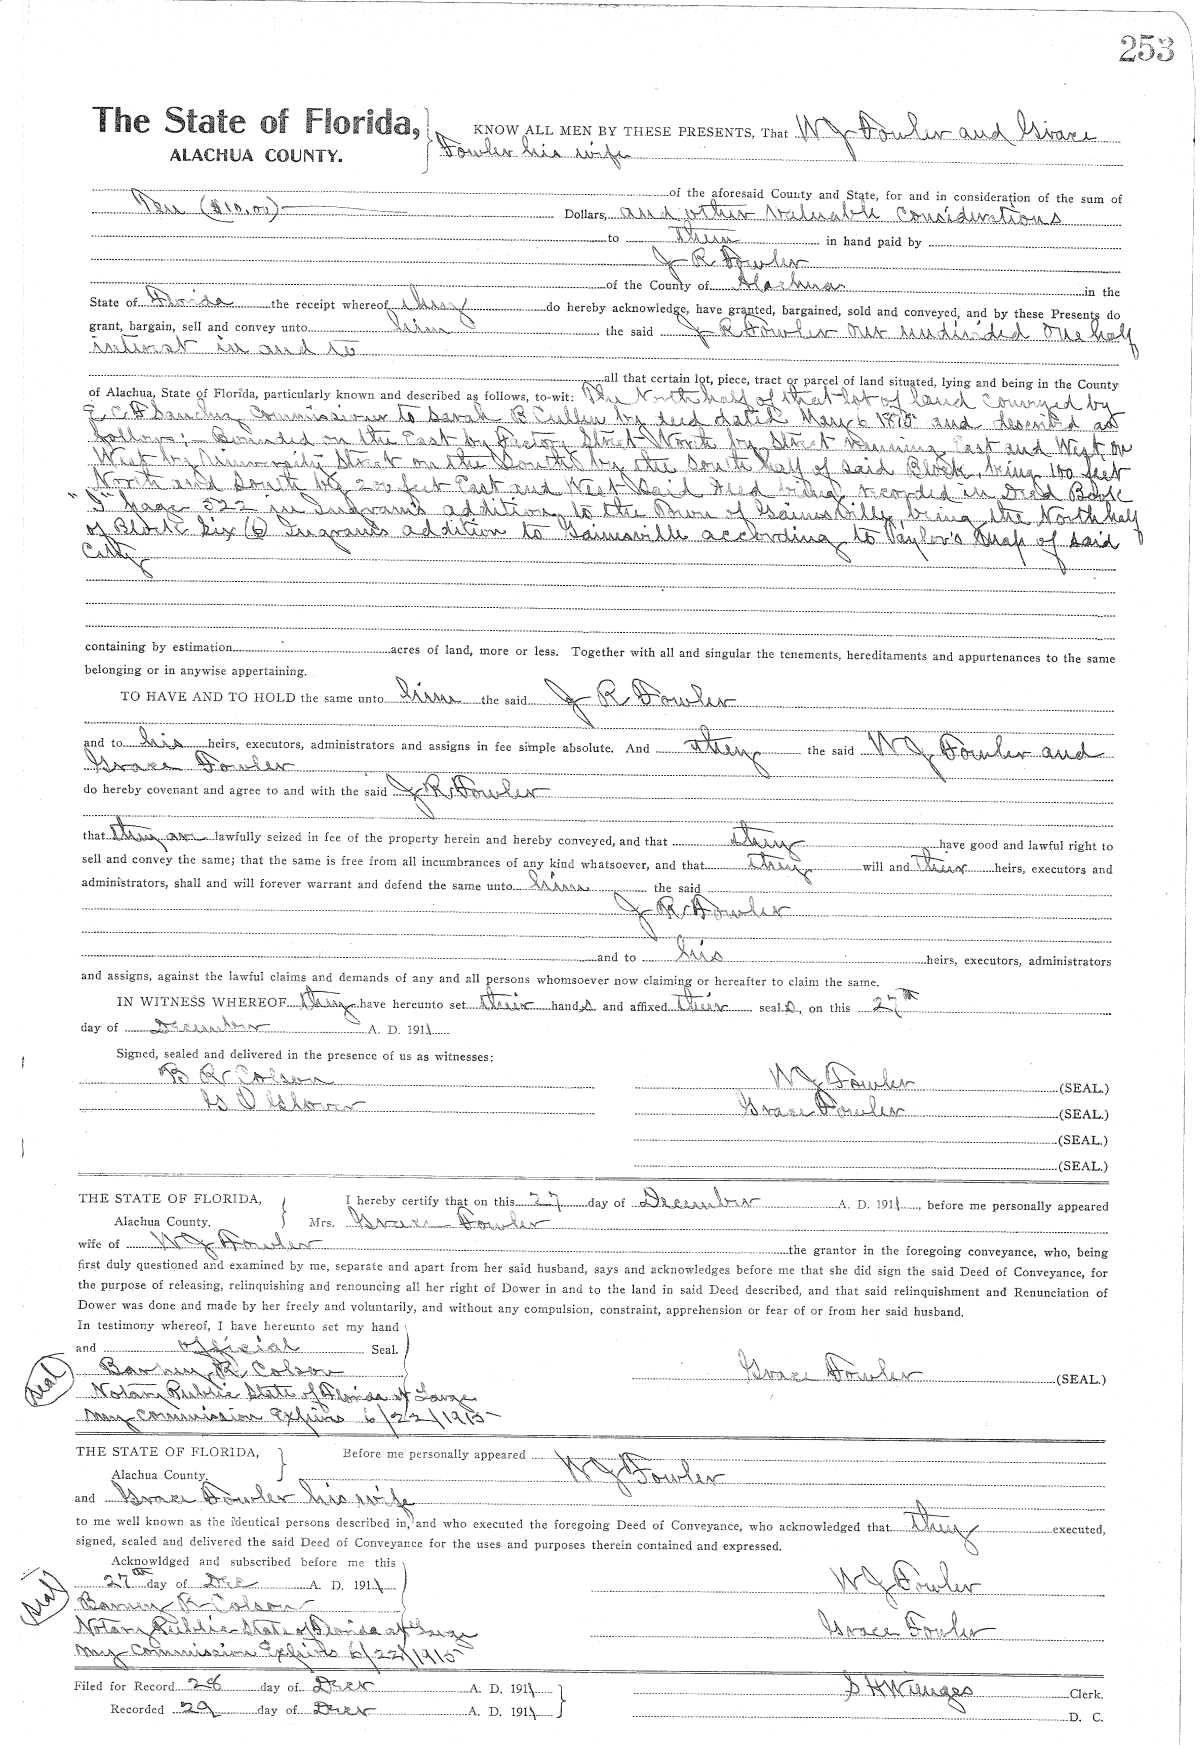 253
The State of Florida,
ALACHUA COUNTY.
KNOW ALL MEN BY THESE PRESENTS, That W J Fowler and Grace
Fowler his wife
of the aforesaid County and State, for and in consideration of the sum of
Ten ($10.00) Dollars, and other valuable considerations
to them in hand paid by
J R Fowler
of the County of Alachua in the
State of Florida the receipt whereof they do hereby acknowledge, have granted, bargained, sold and conveyed, and by these Presents do
grant, bargain, sell and convey unto him the said J R Fowler our undivided one half
interest in and to
all that certain lot, piece, tract or parcel of land situated, lying and being in the County
of Alachua, State of Florida, particularly known and described as follows, to-wit: The North half of that lot of land conveyed by
E. C. F. Sanchez Commissioner to Sarah B Cullen by deed dated May 6 1875 and described as
follows; Bounded on the East by Factory Street North by Street running East and West on
West by University Street on the South by the South half of said Block, being 100 feet
North and South by 200 feet East and West said deed being recorded in Deed Book
"I" page 522 in Ingram's addition to the Town of Gainesville, being the North half
of Block Six (6) Ingram's addition to Gainsville according to Taylor's Map of said
City
containing by estimation acres of land, more or less. Together with all and singular the tenements, hereditaments and appurtenances to the same
belonging or in anywise appertaining.
TO HAVE AND TO HOLD the same unto him the said J R Fowler
and to his heirs, executors, administrators and assigns in fee simple absolute. And they the said W J Fowler and
Grace Fowler
do hereby covenant and agree to and with the said J R Fowler
that they are lawfully seized in fee of the property herein and hereby conveyed, and that they have good and lawful right to
sell and convey the same; that the same is free from all incumbrances of any kind whatsoever, and that they will and their heirs, executors and
administrators, shall and will forever warrant and defend the same unto him the said
J R Fowler
and to his heirs, executors, administrators
and assigns, against the lawful claims and demands of any and all persons whomsoever now claiming or hereafter to claim the same.
IN WITNESS WHEREOF they have hereunto set their hands and affixed their seal s, on this 27th
day of December A. D. 1911
Signed, sealed and delivered in the presence of us as witnesses:
B R Colson W J Fowler (SEAL.)
G O Glover Grace Fowler (SEAL.)
(SEAL.)
(SEAL.)
THE STATE OF FLORIDA, I hereby certify that on this 27 day of December A. D. 1911, before me personally appeared
Alachua County. Mrs. Grace Fowler
wife of W J Fowler the grantor in the foregoing conveyance, who, being
first duly questioned and examined by me, separate and apart from her said husband, says and acknowledges before me that she did sign the said Deed of Conveyance, for
the purpose of releasing, relinquishing and renouncing all her right of Dower in and to the land in said Deed described, and that said relinquishment and Renunciation of
Dower was done and made by her freely and voluntarily, and without any compulsion, constraint, apprehension or fear of or from her said husband.
In testimony whereof, I have hereunto set my hand
and official Seal.
Seal Barney R Colson Grace Fowler (SEAL.)
Notary Public State of Florida at Large
My Commission Expires 6/22/1915
THE STATE OF FLORIDA, Before me personally appeared W J Fowler
Alachua County.
and Grace Fowler his wife
to me well known as the identical persons described in, and who executed the foregoing Deed of Conveyance, who acknowledged that they executed,
signed, sealed and delivered the said Deed of Conveyance for the uses and purposes therein contained and expressed.
Acknowldged and subscribed before me this
27th day of Dec A. D. 1911 W J Fowler
Seal Barney R Colson
Notary Public State of Florida at Large Grace Fowler
My Commission Expires 6/22/1915
Filed for Record 28 day of Decr A. D. 1911 S H Wienges Clerk.
Recorded 29 day of Decr A. D. 1911 D. C.